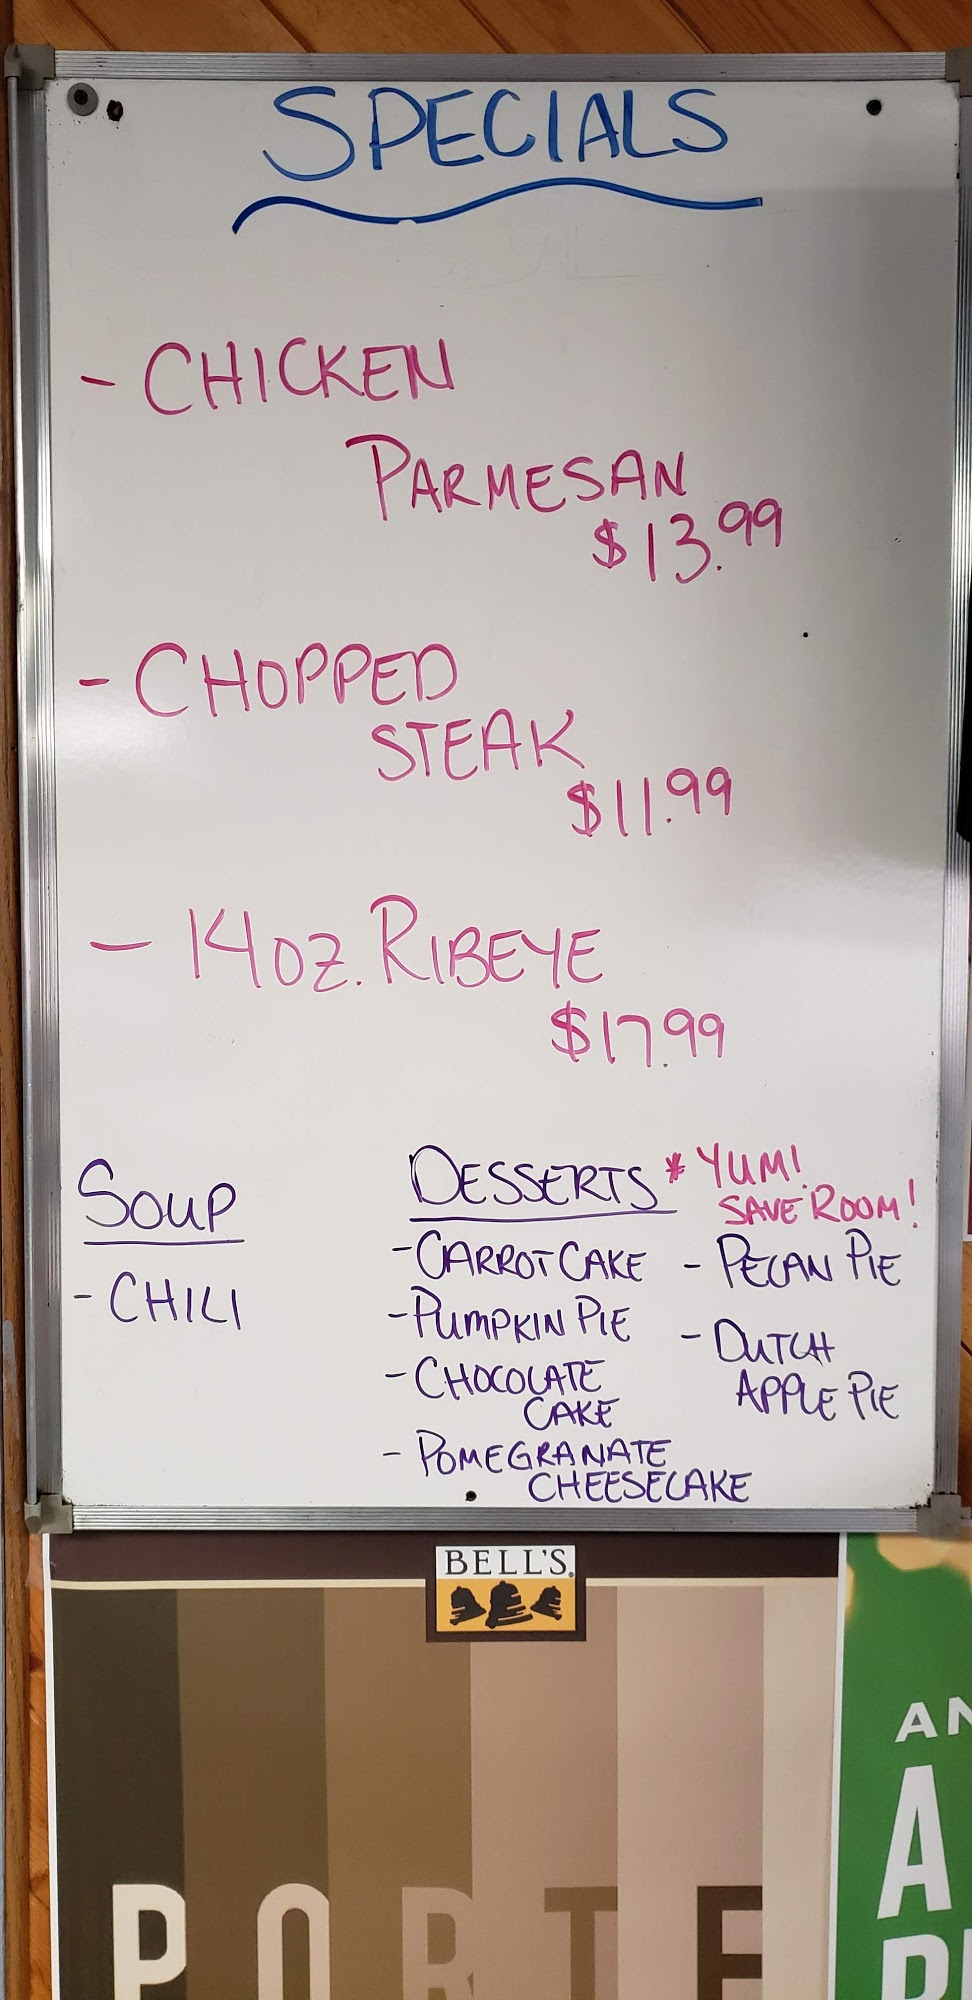 SPECIALS
- CHICKEN
PARMESAN
$13.99
- CHOPPED
STEAK
$11.99
- 14 OZ. RIBEYE
$17.99
SOUP
- CHILI
DESSERTS * YUM!
SAVE ROOM!
- CARROT CAKE
- PUMPKIN PIE
- CHOCOLATE
CAKE
- POMEGRANATE
CHEESECAKE
- PECAN PIE
- DUTCH
APPLE PIE
BELL'S
PORTE
AN
A